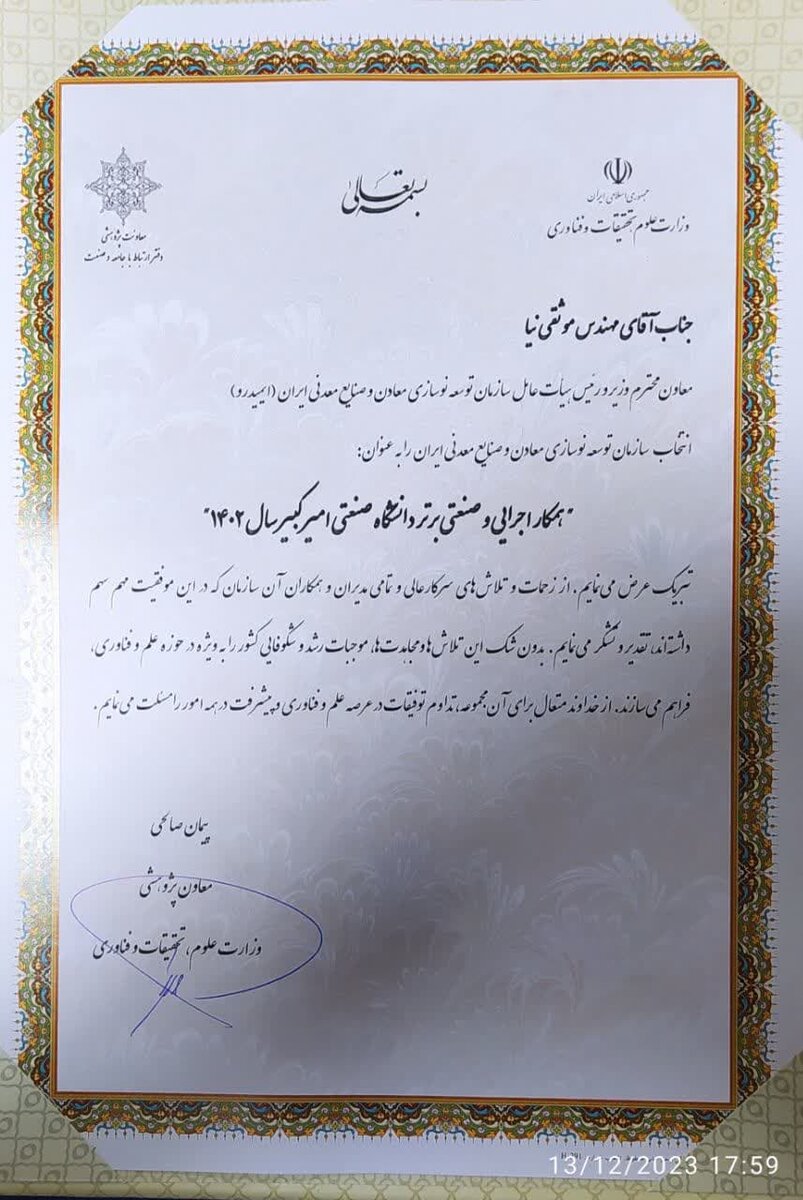 بسمه تعالی
جمهوری اسلامی ایران
وزارت علوم، تحقیقات و فناوری
معاونت پژوهشی
دفتر ارتباط با جامعه و صنعت
جناب آقای مهندس موثقی نیا
معاون محترم وزیر و رئیس هیأت عامل سازمان توسعه نوسازی معادن و صنایع معدنی ایران (ایمیدرو)
انتخاب سازمان توسعه نوسازی معادن و صنایع معدنی ایران را به عنوان:
"همکار اجرایی و صنعتی برتر دانشگاه صنعتی امیرکبیر سال ۱۴۰۲"
تبریک عرض می نمایم. از زحمات و تلاش های سرکارعالی و تمامی مدیران و همکاران آن سازمان که در این موفقیت مهم سهم
داشته‌اند، تقدیر و تشکر می نمایم. بدون شک این تلاش ها و مجاهدت ها، موجبات رشد و شکوفایی کشور را به ویژه در حوزه علم و فناوری،
فراهم می سازند. از خداوند متعال برای آن مجموعه، تداوم توفیقات در عرصه علم و فناوری و پیشرفت در همه امور را مسئلت می نمایم.
پیمان صالحی
معاون پژوهشی
وزارت علوم، تحقیقات و فناوری
13/12/2023 17:59